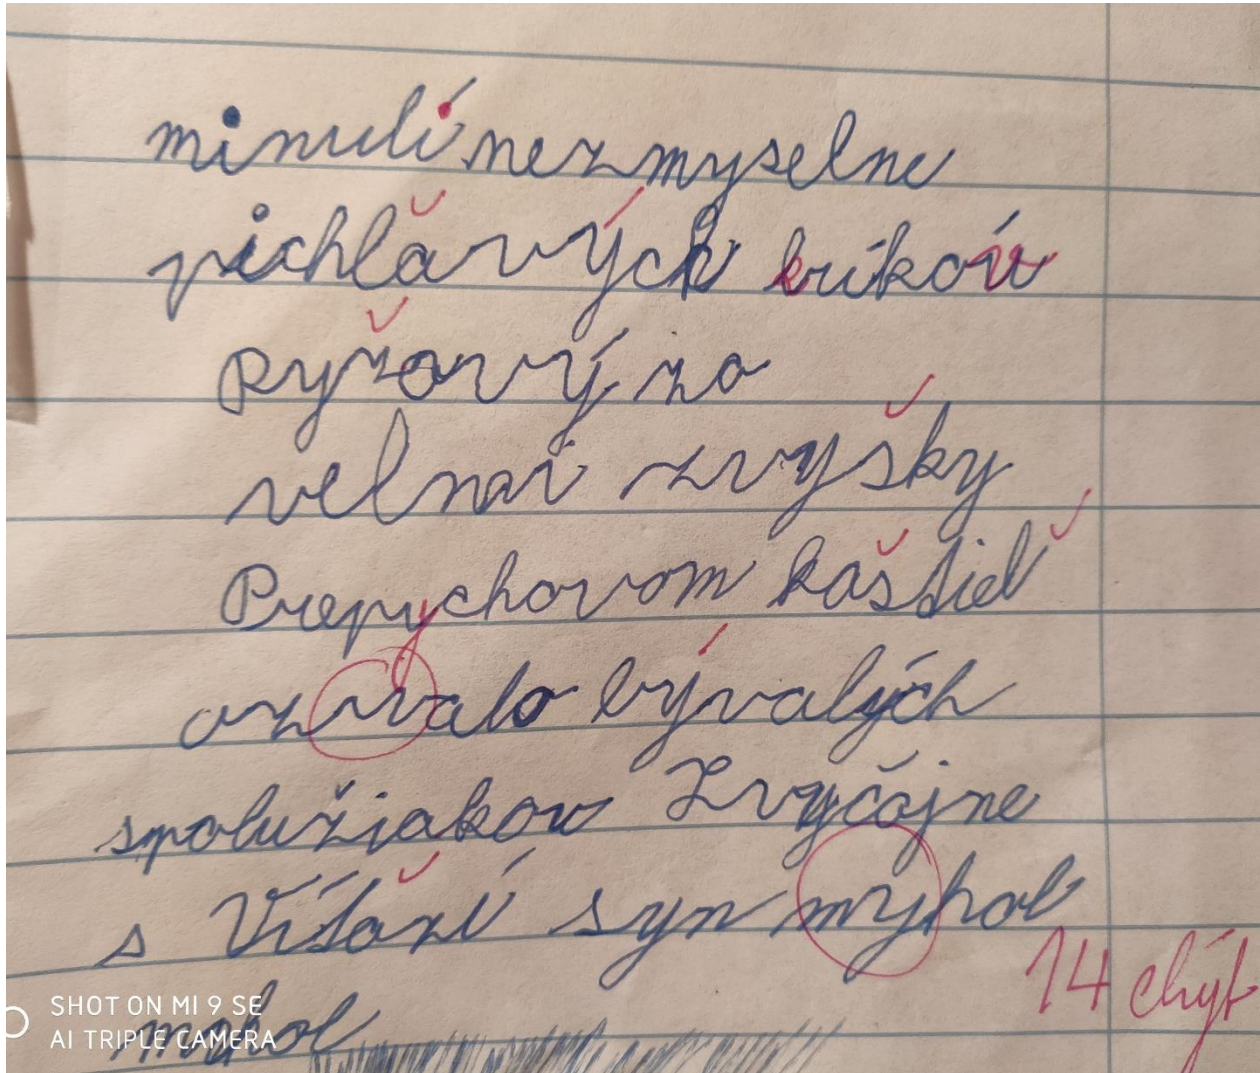 minulí nezmyselne
pichľavých kríkov
Ryžový zo
velnai zvyšky
Prepychovom kaštieľ
ozývalo bývalých
spolužiakov Zvyčajne
s Víťazí syn myhol
mohol
14 chýb
SHOT ON MI 9 SE
AI TRIPLE CAMERA